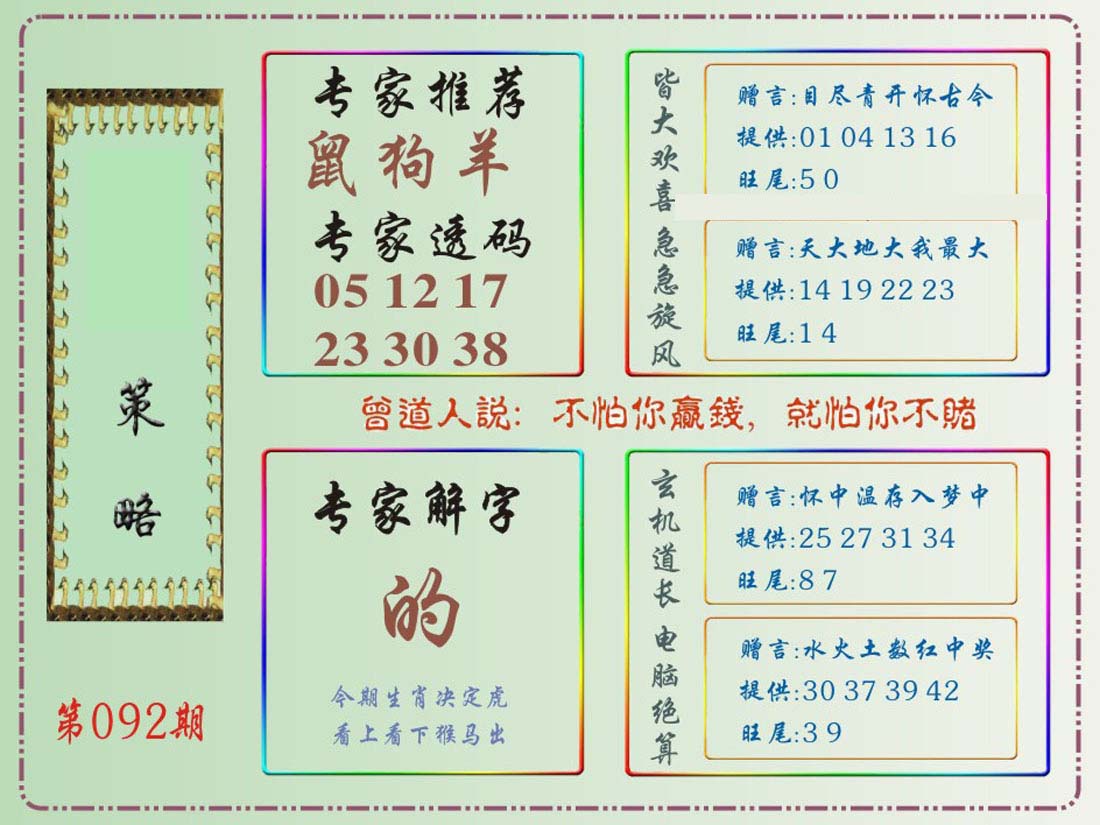 策略
第092期
专家推荐
鼠狗羊
专家透码
05 12 17
23 30 38
皆大欢喜
赠言:目尽青开怀古今
提供:01 04 13 16
旺尾:5 0
急急旋风
赠言:天大地大我最大
提供:14 19 22 23
旺尾:1 4
曾道人説: 不怕你赢錢, 就怕你不賭
专家解字
的
今期生肖决定虎
看上看下猴马出
玄机道长
赠言:怀中温存入梦中
提供:25 27 31 34
旺尾:8 7
电脑绝算
赠言:水火土数红中奖
提供:30 37 39 42
旺尾:3 9